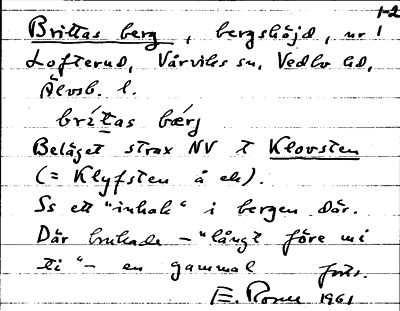 1-2
Brittas berg, bergshöjd, nr 1
Lofterud, Vårviks sn, Vedbo hd,
Älvsb. l.
brít̲as bærg
Beläget strax NV t Klovsten
(= Klyfsten å ek).
Ss ett "inhak" i bergen där.
Där brukade – "långt före mi
ti" – en gammal forts.
1961